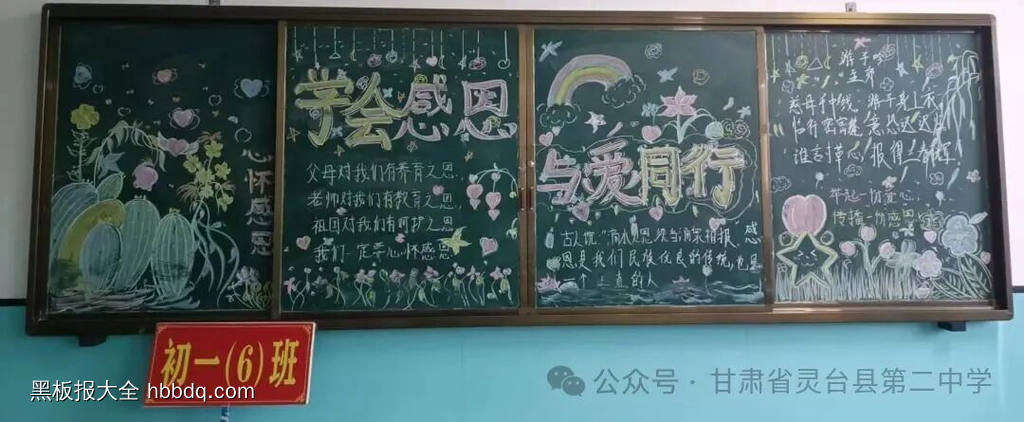 心怀感恩
学会感恩
父母对我们有养育之恩,
老师对我们有教育之恩,
祖国对我们有呵护之恩
我们一定要心怀感恩
与爱同行
古人说:"滴水之恩 涌泉相报, 感
恩是我们民族优良的传统,也是
一个正直的人
游子吟
孟郊
慈母手中线, 游子身上衣,
临行密密缝, 意恐迟迟归
谁言寸草心, 报得三春晖.
举起一份爱心,
传播一份感恩
初一(6)班
黑板报大全 hbbdq.com
公众号·甘肃省灵台县第二中学